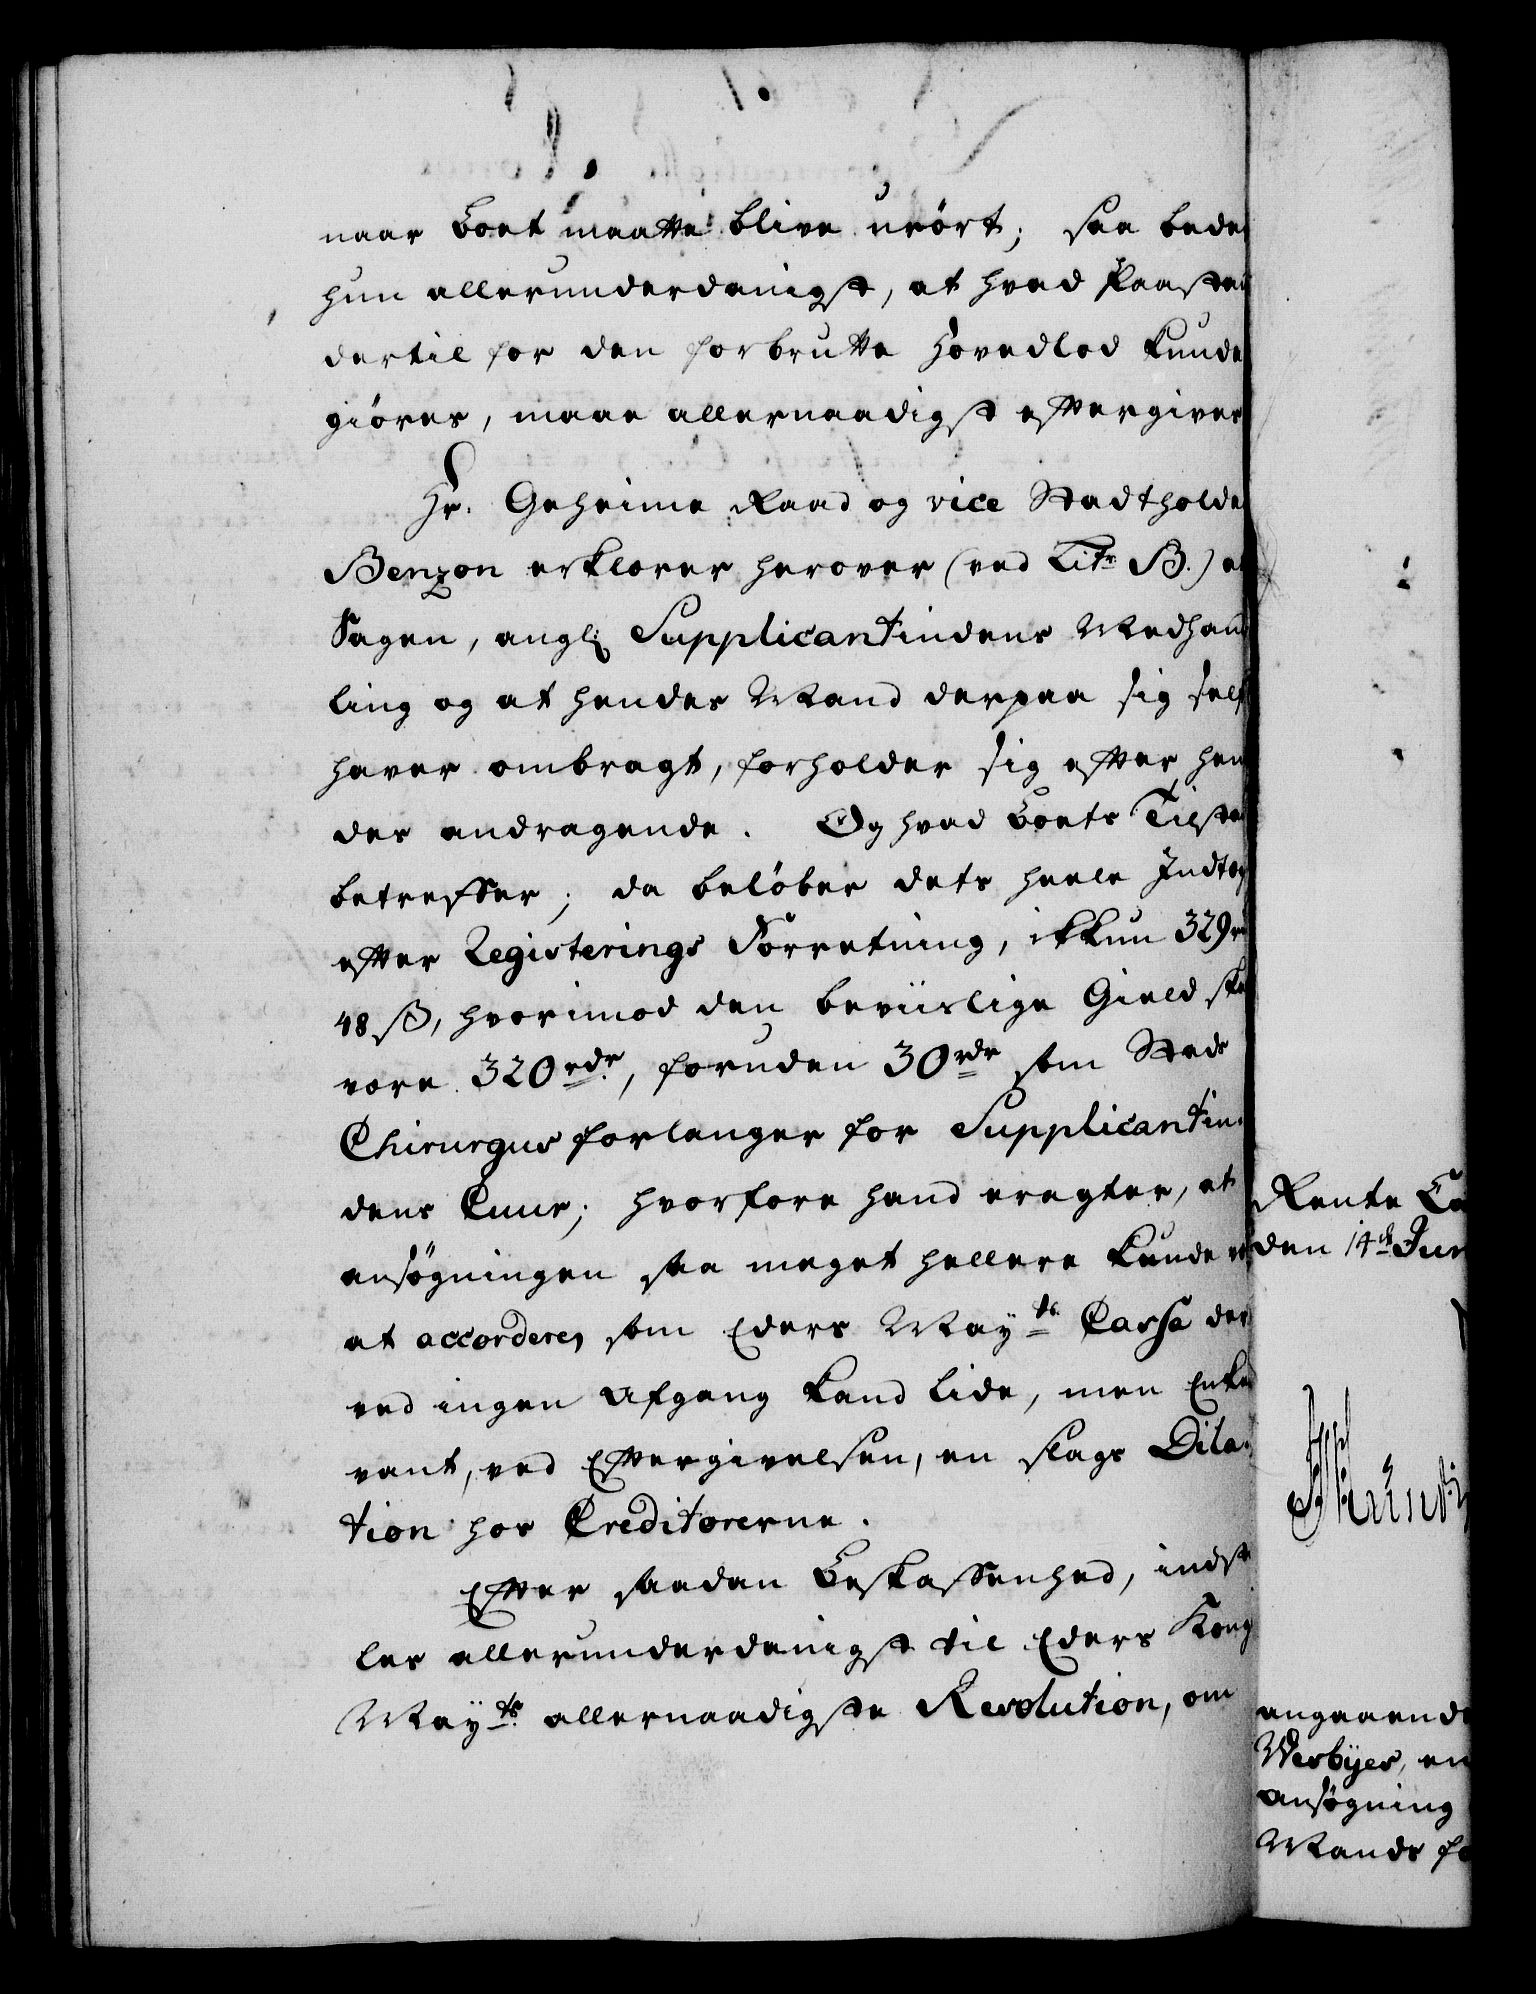 naar Boet maatte blive urört; saa beder
hun allerunderdanigst, at hvad Paastan
dertil for den forbrutte Hovedlod kunde
giöres, maae allernaadigst eftergives
Hr. Geheime Raad og vice Stadtholder
Benzon erklærer herover (ved Litr B.) at
Sagen, angl: Supplicantindens Medhand
ling og at hendes Mand derpaa sig self
haver ombragt, forholder sig efter hen
des andragende. Og hvad Boets Tilstan
betreffer; da belöber dets heele Indtægt
efter Registerings Forretning, ikkun 329 rd
48 ß, hvorimod den beviislige Gield skal
være 320 rdr, foruden 30 rdr som Stads
Chirurgus forlanger for Supplicantin-
dens Cuur; hvorfore hand eragter, at
ansøgningen saa meget hellere kunde
at accorderes som Eders Mayts Cassa der
ved ingen Afgang kand lide, men Enken
vant, ved Eftergivelsen, en slags Dila-
tion hos Creditorerne.
Efter saadan Beskaffenhed, indstil
les allerunderdanigst til Eders Kongl
Mayts allernaadigste Resolution, om
Rente Ca
den 14de Jun
angaaende
Wesbyes, en
ansøgning
Mands fo